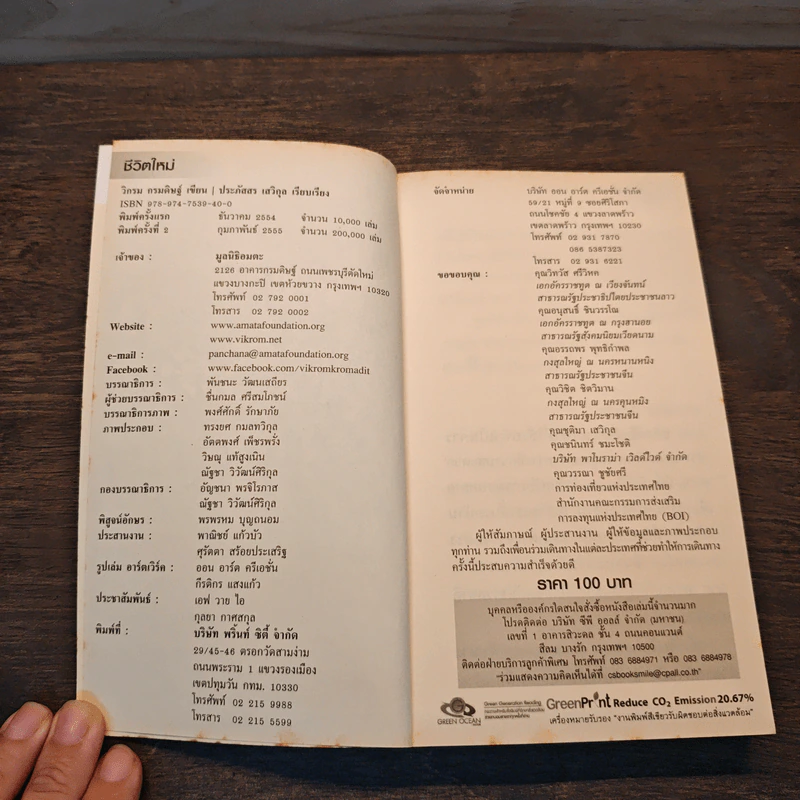 ชีวิตใหม่
วิกรม กรมดิษฐ์ เขียน | ประภัสสร เสวิกุล เรียบเรียง
ISBN 978-974-7539-40-0
พิมพ์ครั้งแรก ธันวาคม 2554 จำนวน 10,000 เล่ม
พิมพ์ครั้งที่ 2 กุมภาพันธ์ 2555 จำนวน 200,000 เล่ม
เจ้าของ : มูลนิธิอมตะ
2126 อาคารกรมดิษฐ์ ถนนเพชรบุรีตัดใหม่
แขวงบางกะปิ เขตห้วยขวาง กรุงเทพฯ 10320
โทรศัพท์ 02 792 0001
โทรสาร 02 792 0002
Website : www.amatafoundation.org
www.vikrom.net
e-mail : panchana@amatafoundation.org
Facebook : www.facebook.com/vikromkromadit
บรรณาธิการ : พันชนะ วัฒนเสถียร
ผู้ช่วยบรรณาธิการ : ชื่นกมล ศรีสมโภชน์
บรรณาธิการภาพ : พงศ์ศักดิ์ รักษาภัย
ภาพประกอบ : ทรงยศ กมลทวิกุล
อัตตพงศ์ เพ็ชรพรั่ง
วิษณุ แท้สูงเนิน
ณัฐชา วิวัฒน์ศิริกุล
กองบรรณาธิการ : อัญชนา พรจิโรภาส
ณัฐชา วิวัฒน์ศิริกุล
พิสูจน์อักษร : พรพรหม บุญถนอม
ประสานงาน : พาณิชย์ แก้วบัว
ศุรัตดา สร้อยประเสริฐ
รูปเล่ม อาร์ตเวิร์ค : ออน อาร์ต ครีเอชั่น
กีรติกร แสงแก้ว
ประชาสัมพันธ์ : เอฟ วาย ไอ
กุลยา กาศสกุล
พิมพ์ที่ : บริษัท พริ้นท์ ซิตี้ จำกัด
29/45-46 ตรอกวัดสามง่าม
ถนนพระราม 1 แขวงรองเมือง
เขตปทุมวัน กทม. 10330
โทรศัพท์ 02 215 9988
โทรสาร 02 215 5599
จัดจำหน่าย บริษัท ออน อาร์ต ครีเอชั่น จำกัด
59/21 หมู่ที่ 9 ซอยศิริโสภา
ถนนโชคชัย 4 แขวงลาดพร้าว
เขตลาดพร้าว กรุงเทพฯ 10230
โทรศัพท์ 02 931 7870
086 5387323
โทรสาร 02 931 6221
ขอขอบคุณ : คุณวิทวัส ศรีวิหค
เอกอัครราชทูต ณ เวียงจันทน์
สาธารณรัฐประชาธิปไตยประชาชนลาว
คุณอนุสนธิ์ ชินวรรโณ
เอกอัครราชทูต ณ กรุงฮานอย
สาธารณรัฐสังคมนิยมเวียดนาม
คุณอรรถพร พุทธิกำพล
กงสุลใหญ่ ณ นครหนานหนิง
สาธารณรัฐประชาชนจีน
คุณวิชิต ชิตวิมาน
กงสุลใหญ่ ณ นครคุนหมิง
สาธารณรัฐประชาชนจีน
คุณชุติมา เสวิกุล
คุณชนินทร์ ชมะโชติ
บริษัท พาโนราม่า เวิลด์ไวด์ จำกัด
คุณวรรณา ชูชัยศรี
การท่องเที่ยวแห่งประเทศไทย
สำนักงานคณะกรรมการส่งเสริม
การลงทุนแห่งประเทศไทย (BOI)
ผู้ให้สัมภาษณ์ ผู้ประสานงาน ผู้ให้ข้อมูลและภาพประกอบ
ทุกท่าน รวมถึงเพื่อนร่วมเดินทางในแต่ละประเทศที่ช่วยทำให้การเดินทาง
ครั้งนี้ประสบความสำเร็จด้วยดี
ราคา 100 บาท
บุคคลหรือองค์กรใดสนใจสั่งซื้อหนังสือเล่มนี้จำนวนมาก
โปรดติดต่อ บริษัท ซีพี ออลล์ จำกัด (มหาชน)
เลขที่ 1 อาคารสิวะดล ชั้น 4 ถนนคอนแวนต์
สีลม บางรัก กรุงเทพฯ 10500
ติดต่อฝ่ายบริการลูกค้าพิเศษ โทรศัพท์ 083 6884971 หรือ 083 6884978
"ร่วมแสดงความคิดเห็นได้ที่ csbooksmile@cpall.co.th"
GREEN OCEAN
Green Generation Reading
GreenPrint Reduce CO2 Emission 20.67%
เครื่องหมายรับรอง "งานพิมพ์สีเขียวรับผิดชอบต่อสิ่งแวดล้อม"